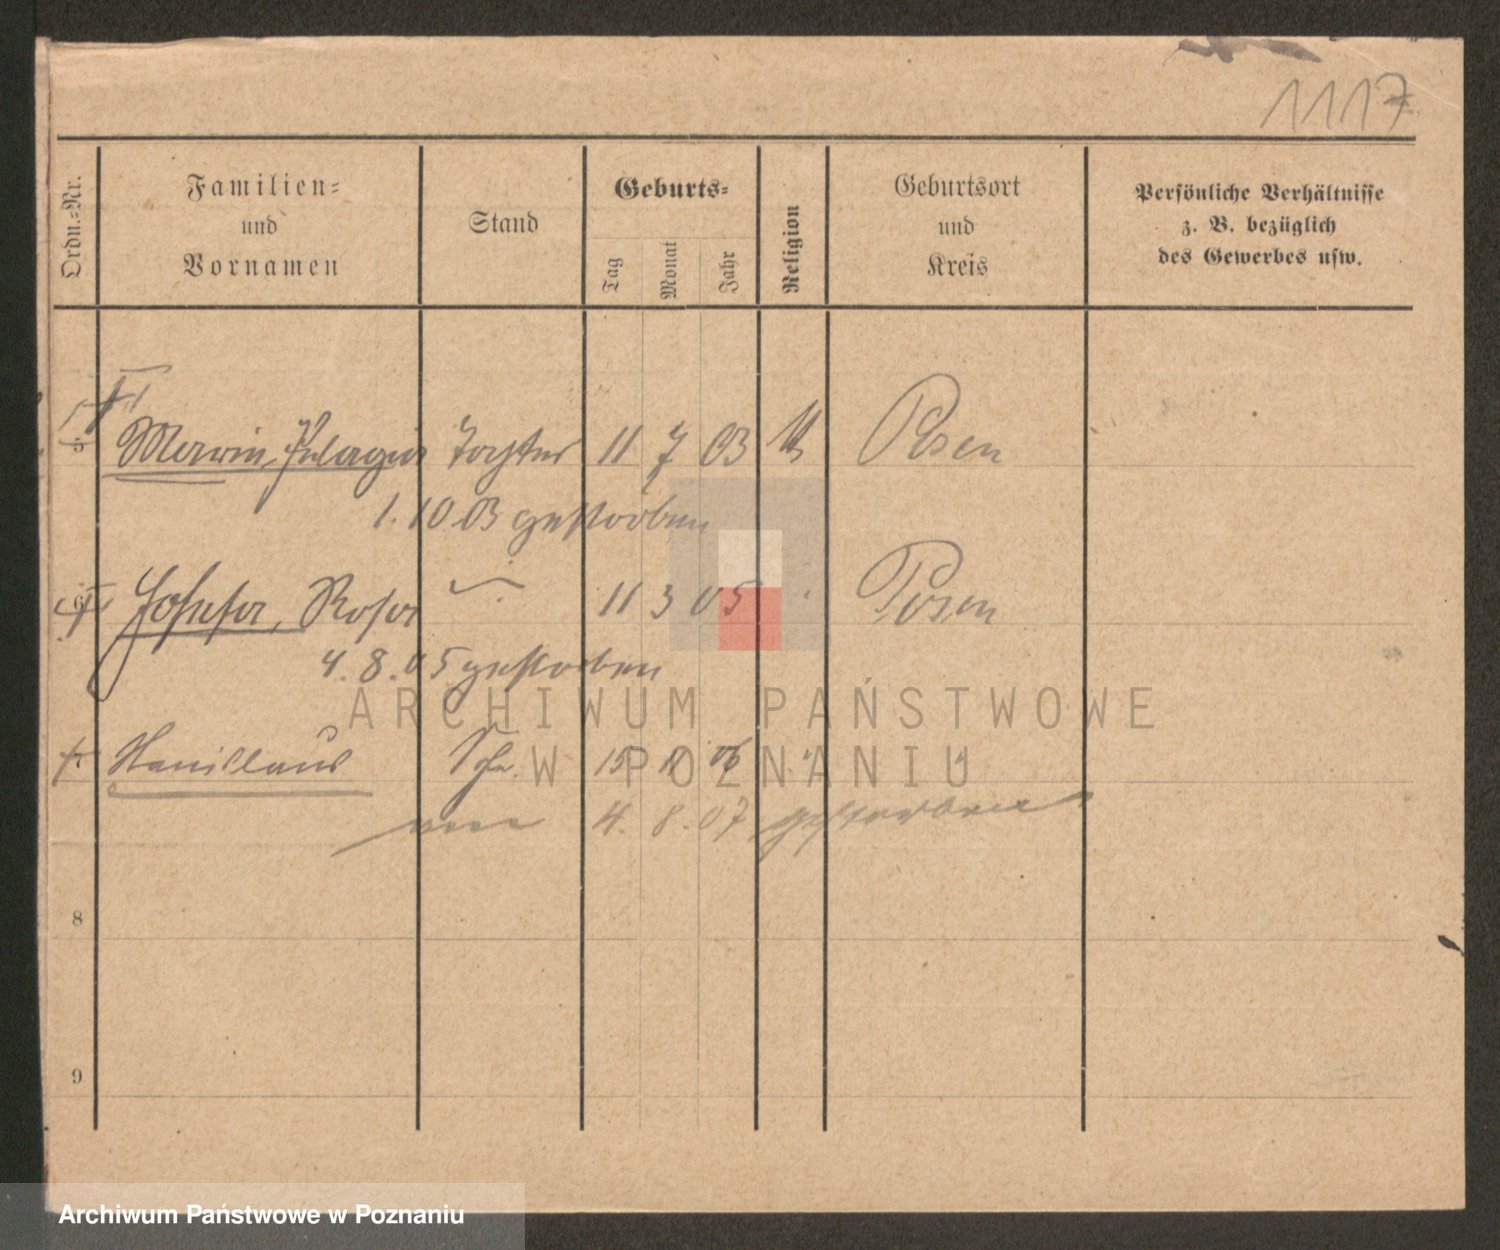 1117
Ordn.=Nr.
Familien=
und
Vornamen
Stand
Geburts=
Tag
Monat
Jahr
Religion
Geburtsort
und
Kreis
Persönliche Verhältnisse
z. B. bezüglich
des Gewerbes usw.
5 Pelagia Tochter 11 7 03 Posen
1.10 03 gestorben
6 Josefa, Rosa 11 3 05 Posen
4.8.05 gestorben
7 Stanislaus 15 06
4. 8. 07 gestorben
8
9
ARCHIWUM PAŃSTWOWE
W POZNANIU
Archiwum Państwowe w Poznaniu